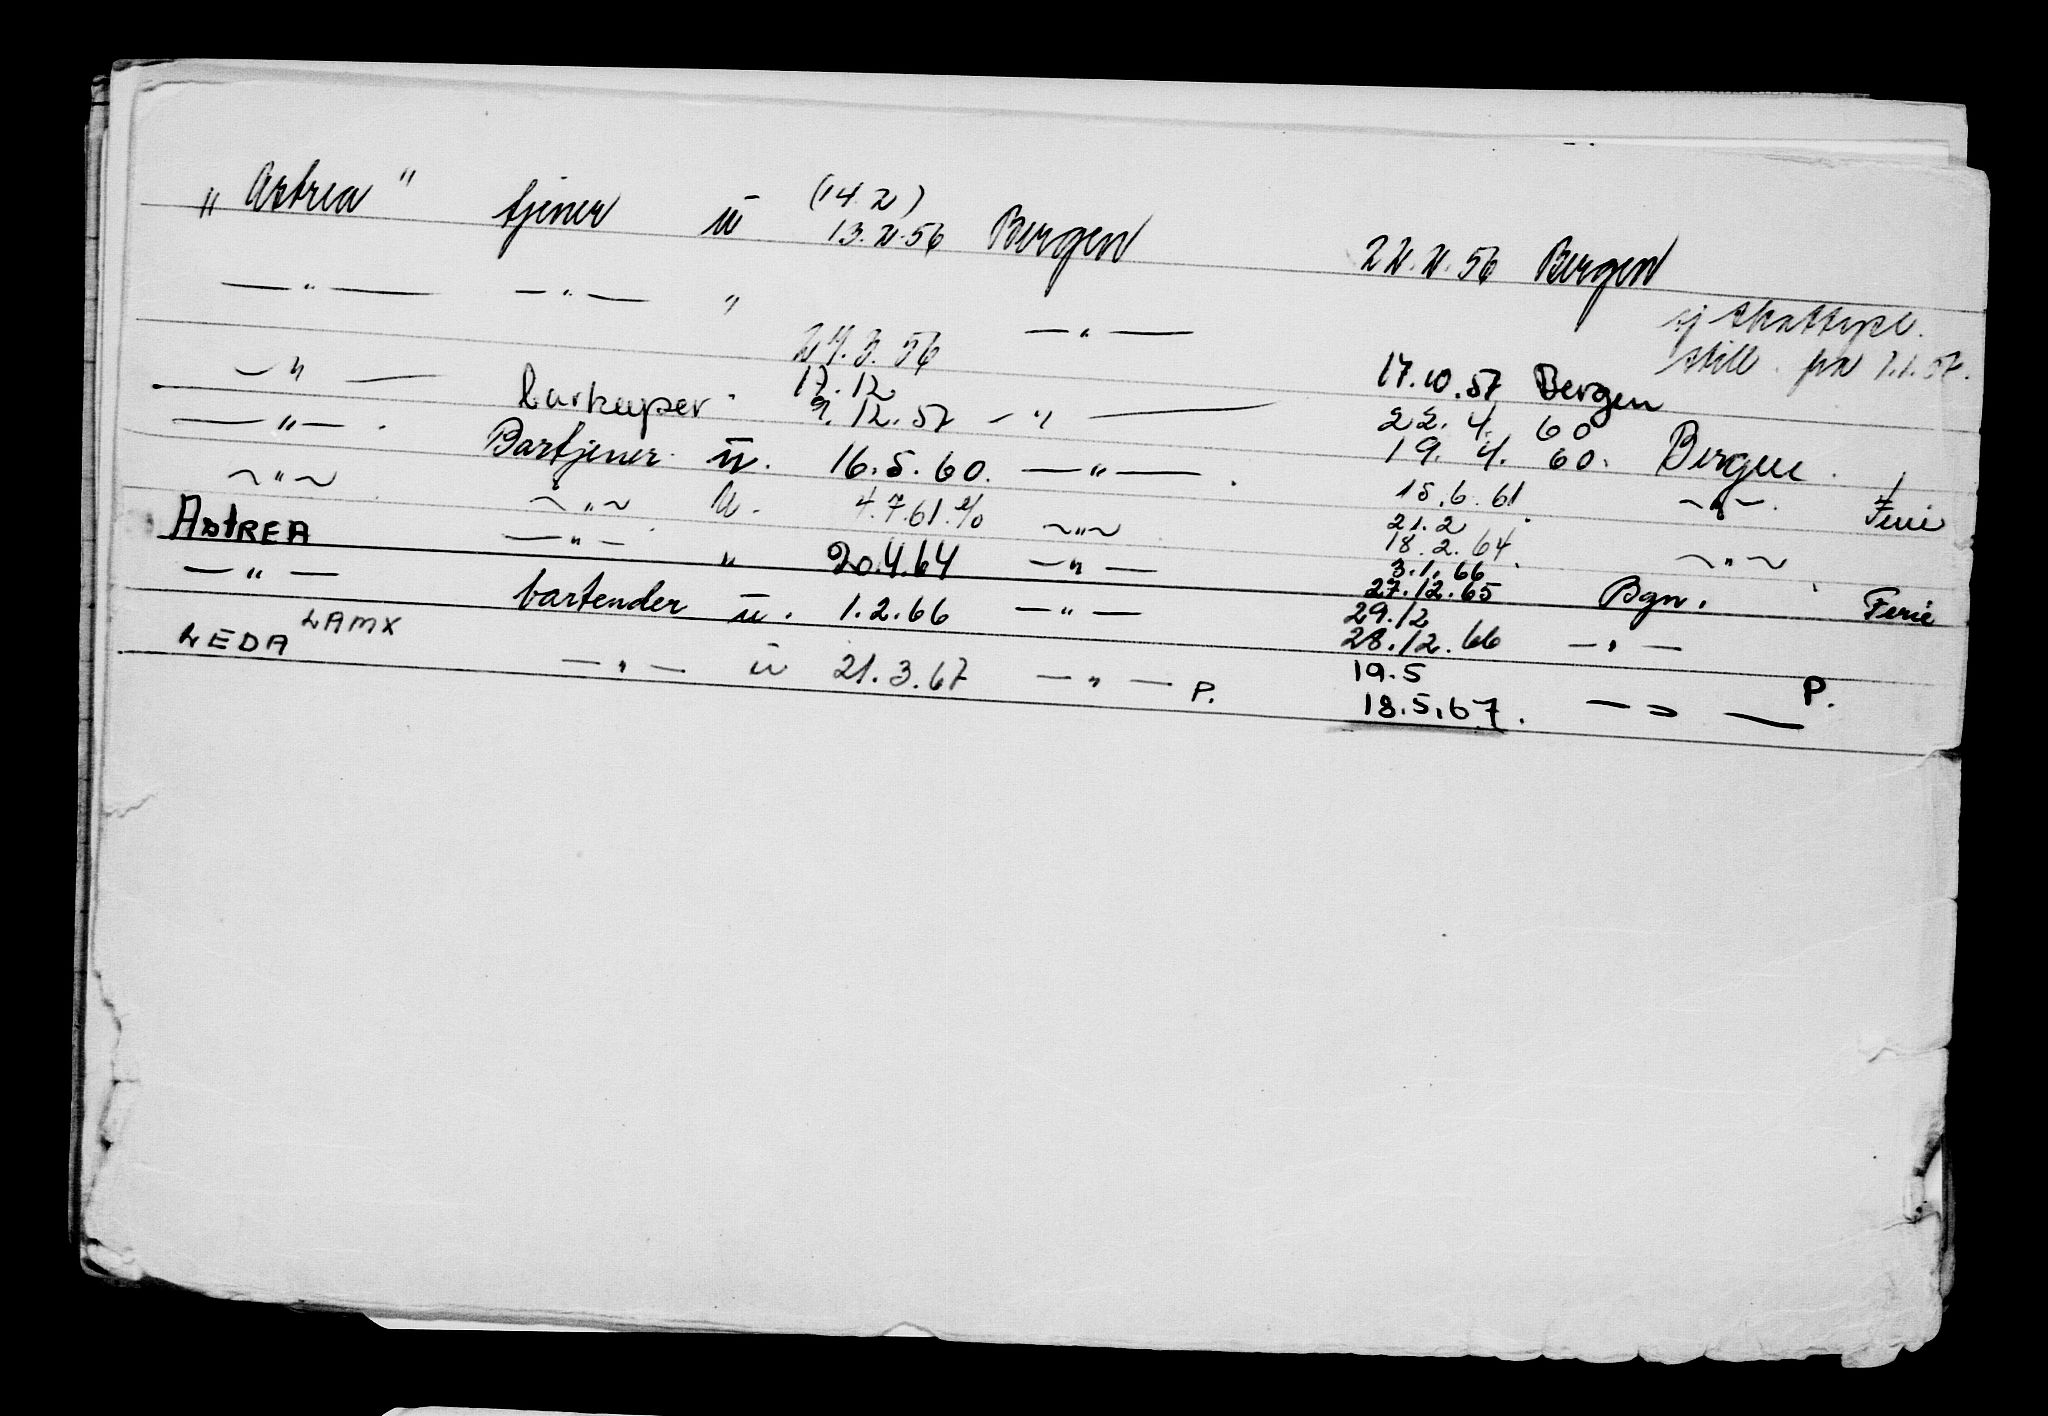 „ Astrea " tjener u (14.2) 13.2.56 Bergen 22.2.56 Bergen
— " — — " — " 24.3.56 — " — 17.10.57 Bergen sj skattepl. still. fra 1.1.57.
— " — barkeeper. 17.12 9.12.57 — " — 22.4.60 19.4.60. Bergen.
— " — . Bartjener u. 16.5.60. — " — . 15.6.61 ~ " ~ . Ferie
~ " ~ ~ " ~ u. 4.7.61. ~ " ~ 21.2 18.2.64. ~ " ~
ASTREA — " — " 20.4.64 — " — 3.1.66 27.12.65 Bgn. Ferie
— " — bartender u. 1.2.66 — " — 29.12 28.12.66 — " —
LEDA LAMX — " — u 21.3.67 — " — P. 19.5 18.5.67. — " — P.